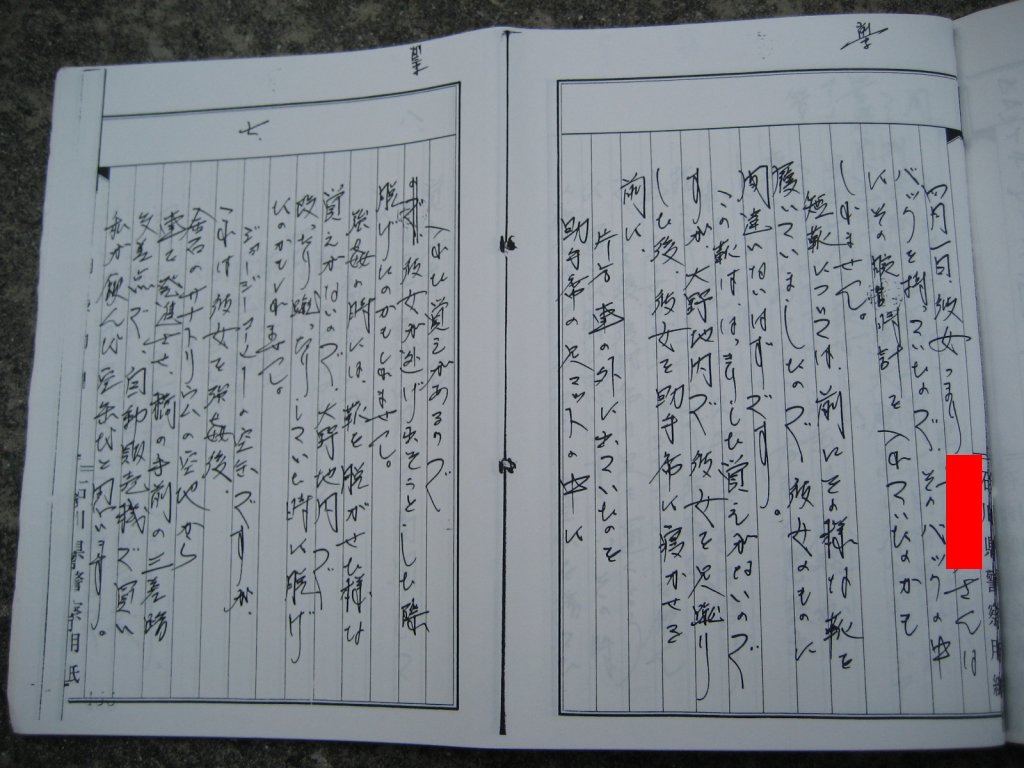 四月一日彼女つまり
さんは
バックを持っていたので、そのバックの中
にその腕時計を入れていたかも
しれません。
短靴については、前にその様な靴を
履いていましたので、彼女のものに
間違いないはずです。
この靴は、はっきりした覚えがないので
すが、大野地内で彼女を足蹴り
した後、彼女を助手席に寝かせる
前に、
片方車の外に出ていたのを
助手席の足マットの中に
入れた覚えがあるので
彼女が逃げ出そうとした際
脱げたのかもしれません。
強姦の時には、靴を脱がせた様な
覚えがないので、大野地内で
殴ったり蹴ったりしていた時に脱げ
たのかもしれません。
ジョージアコーヒーの空きですが
これは彼女を強姦後、
金石のサナトリウムの空地から
車を発進させ、橋の手前の三差路
交差点で、自動販売機で買い
私が飲んだ空缶だと思います。
七
石川県警察